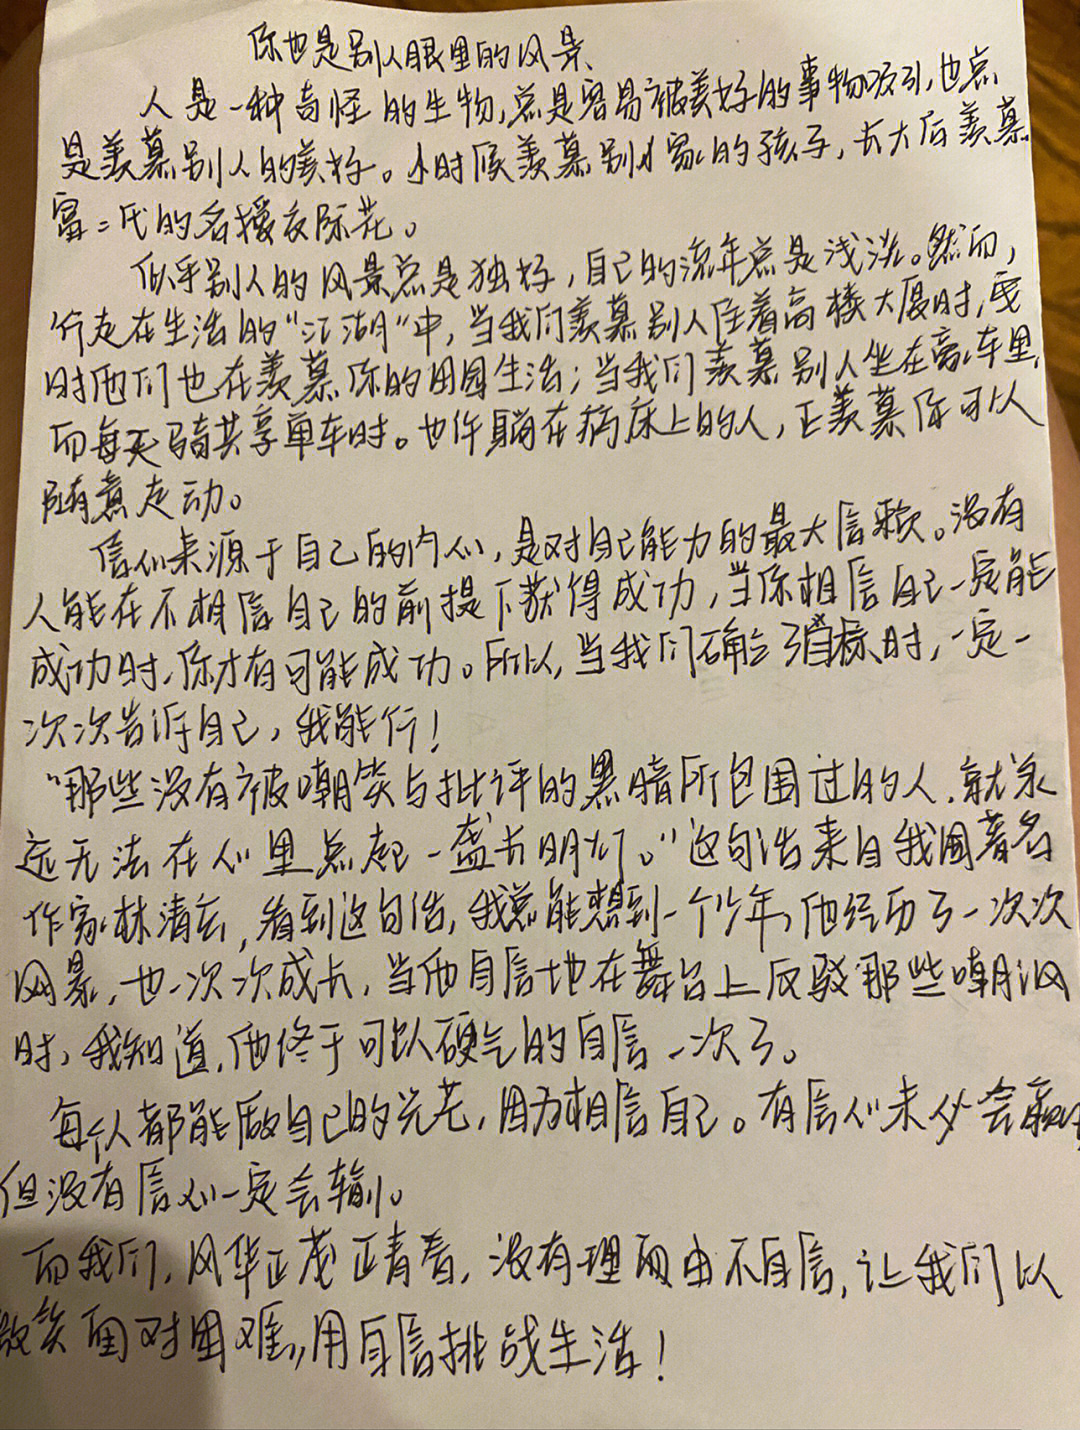 你也是别人眼里的风景
人是一种奇怪的生物,总是容易被美好的事物吸引,也总
是羡慕别人的美好。小时候羡慕别人家的孩子,长大后羡慕
富二代的名援交际花。
似乎别人的风景总是独好,自己的流年总是浅淡。然而,
行走在生活的“江湖”中,当我们羡慕别人住着高楼大厦时,
时他们也在羡慕你的田园生活;当我们羡慕别人坐在豪车里,
而每天骑共享单车时。也许躺在病床上的人,正羡慕你可以
随意走动。
信心来源于自己的内心,是对自己能力的最大信赖。没有
人能在不相信自己的前提下获得成功,当你相信自己一定能
成功时,你才有可能成功。所以,当我们确立了目标时,一定一
次次告诉自己,我能行!
“那些没有被嘲笑与批评的黑暗所包围过的人,就永
远无法在心里点起一盏长明灯。”这句话来自我国著名
作家林清玄,看到这句话,我总能想到一个少年,他经历了一次次
风暴,也一次次成长,当他自信地在舞台上反驳那些嘲讽
时,我知道,他终于可以硬气的自信一次了。
每个人都能做自己的光芒,因为相信自己。有信心未必会赢,
但没有信心一定会输。
而我们,风华正茂正青春,没有理由不自信,让我们以
微笑面对困难,用自信挑战生活!